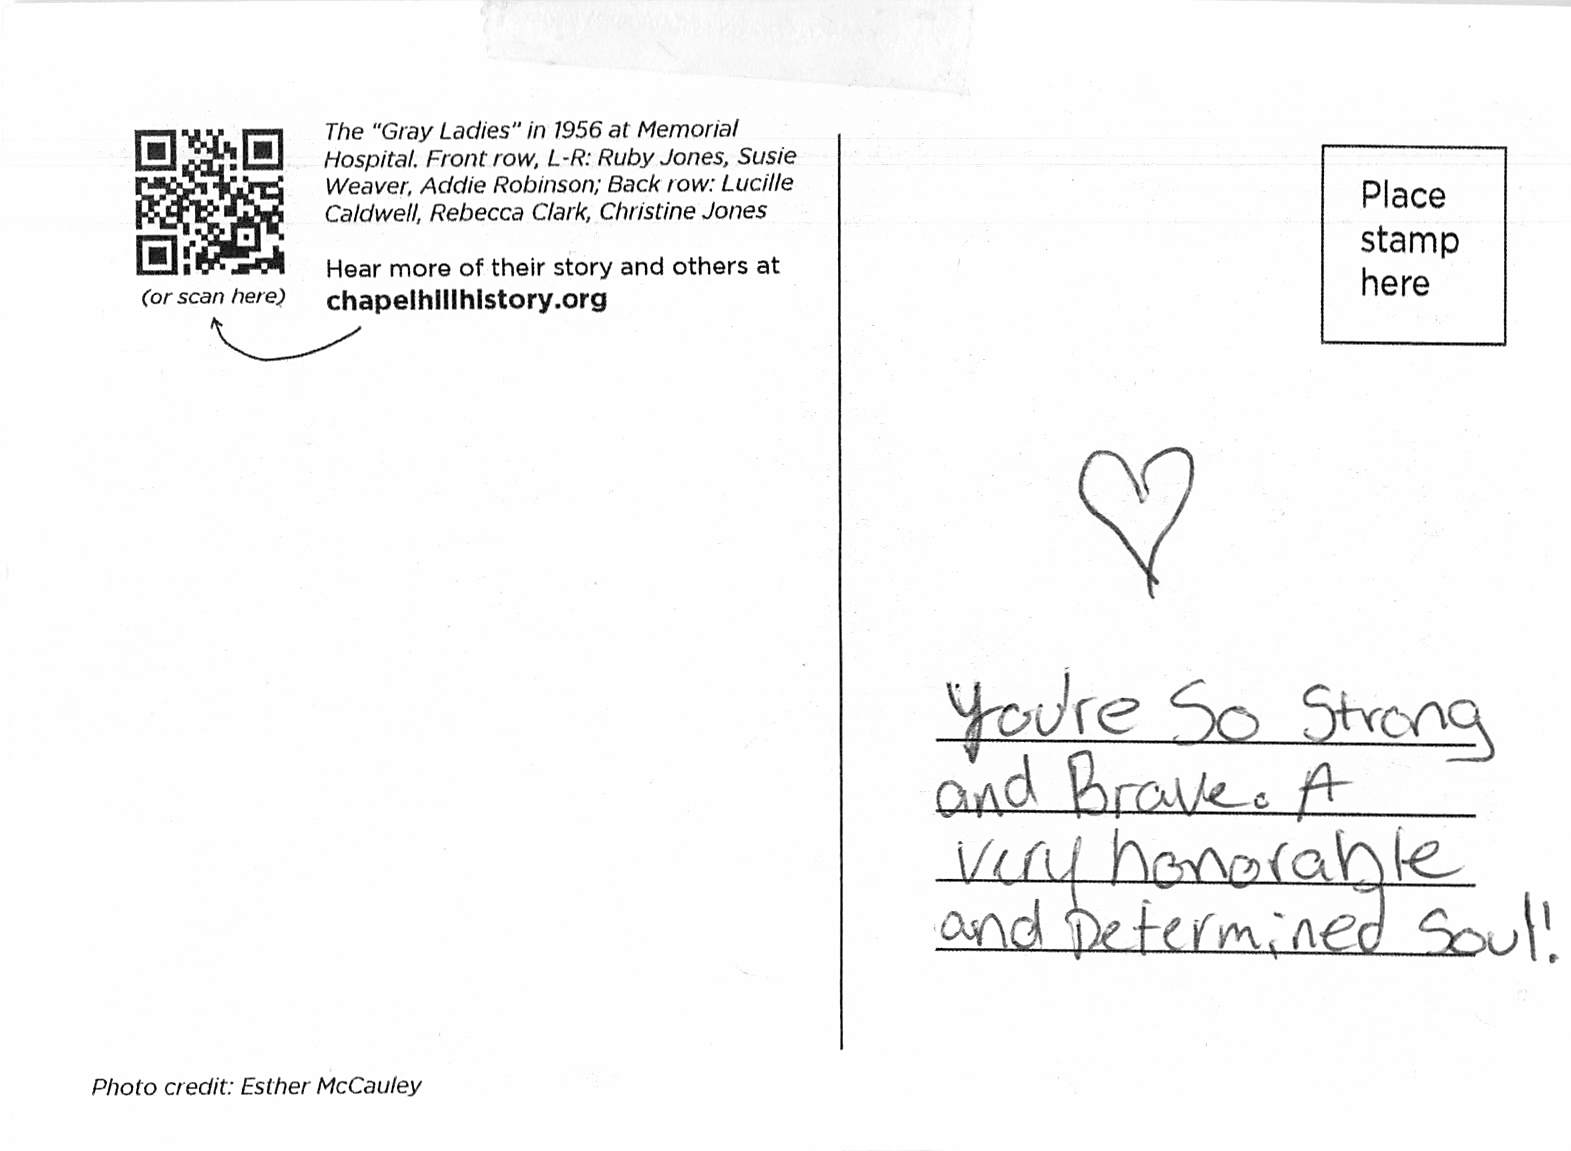 The "Gray Ladies" in 1956 at Memorial
Hospital. Front row, L-R: Ruby Jones, Susie
Weaver, Addie Robinson; Back row: Lucille
Caldwell, Rebecca Clark, Christine Jones
Hear more of their story and others at
chapelhillhistory.org
(or scan here)
Photo credit: Esther McCauley
Place
stamp
here
You're So Strong
and Brave. A
very honorable
and Determined Soul!